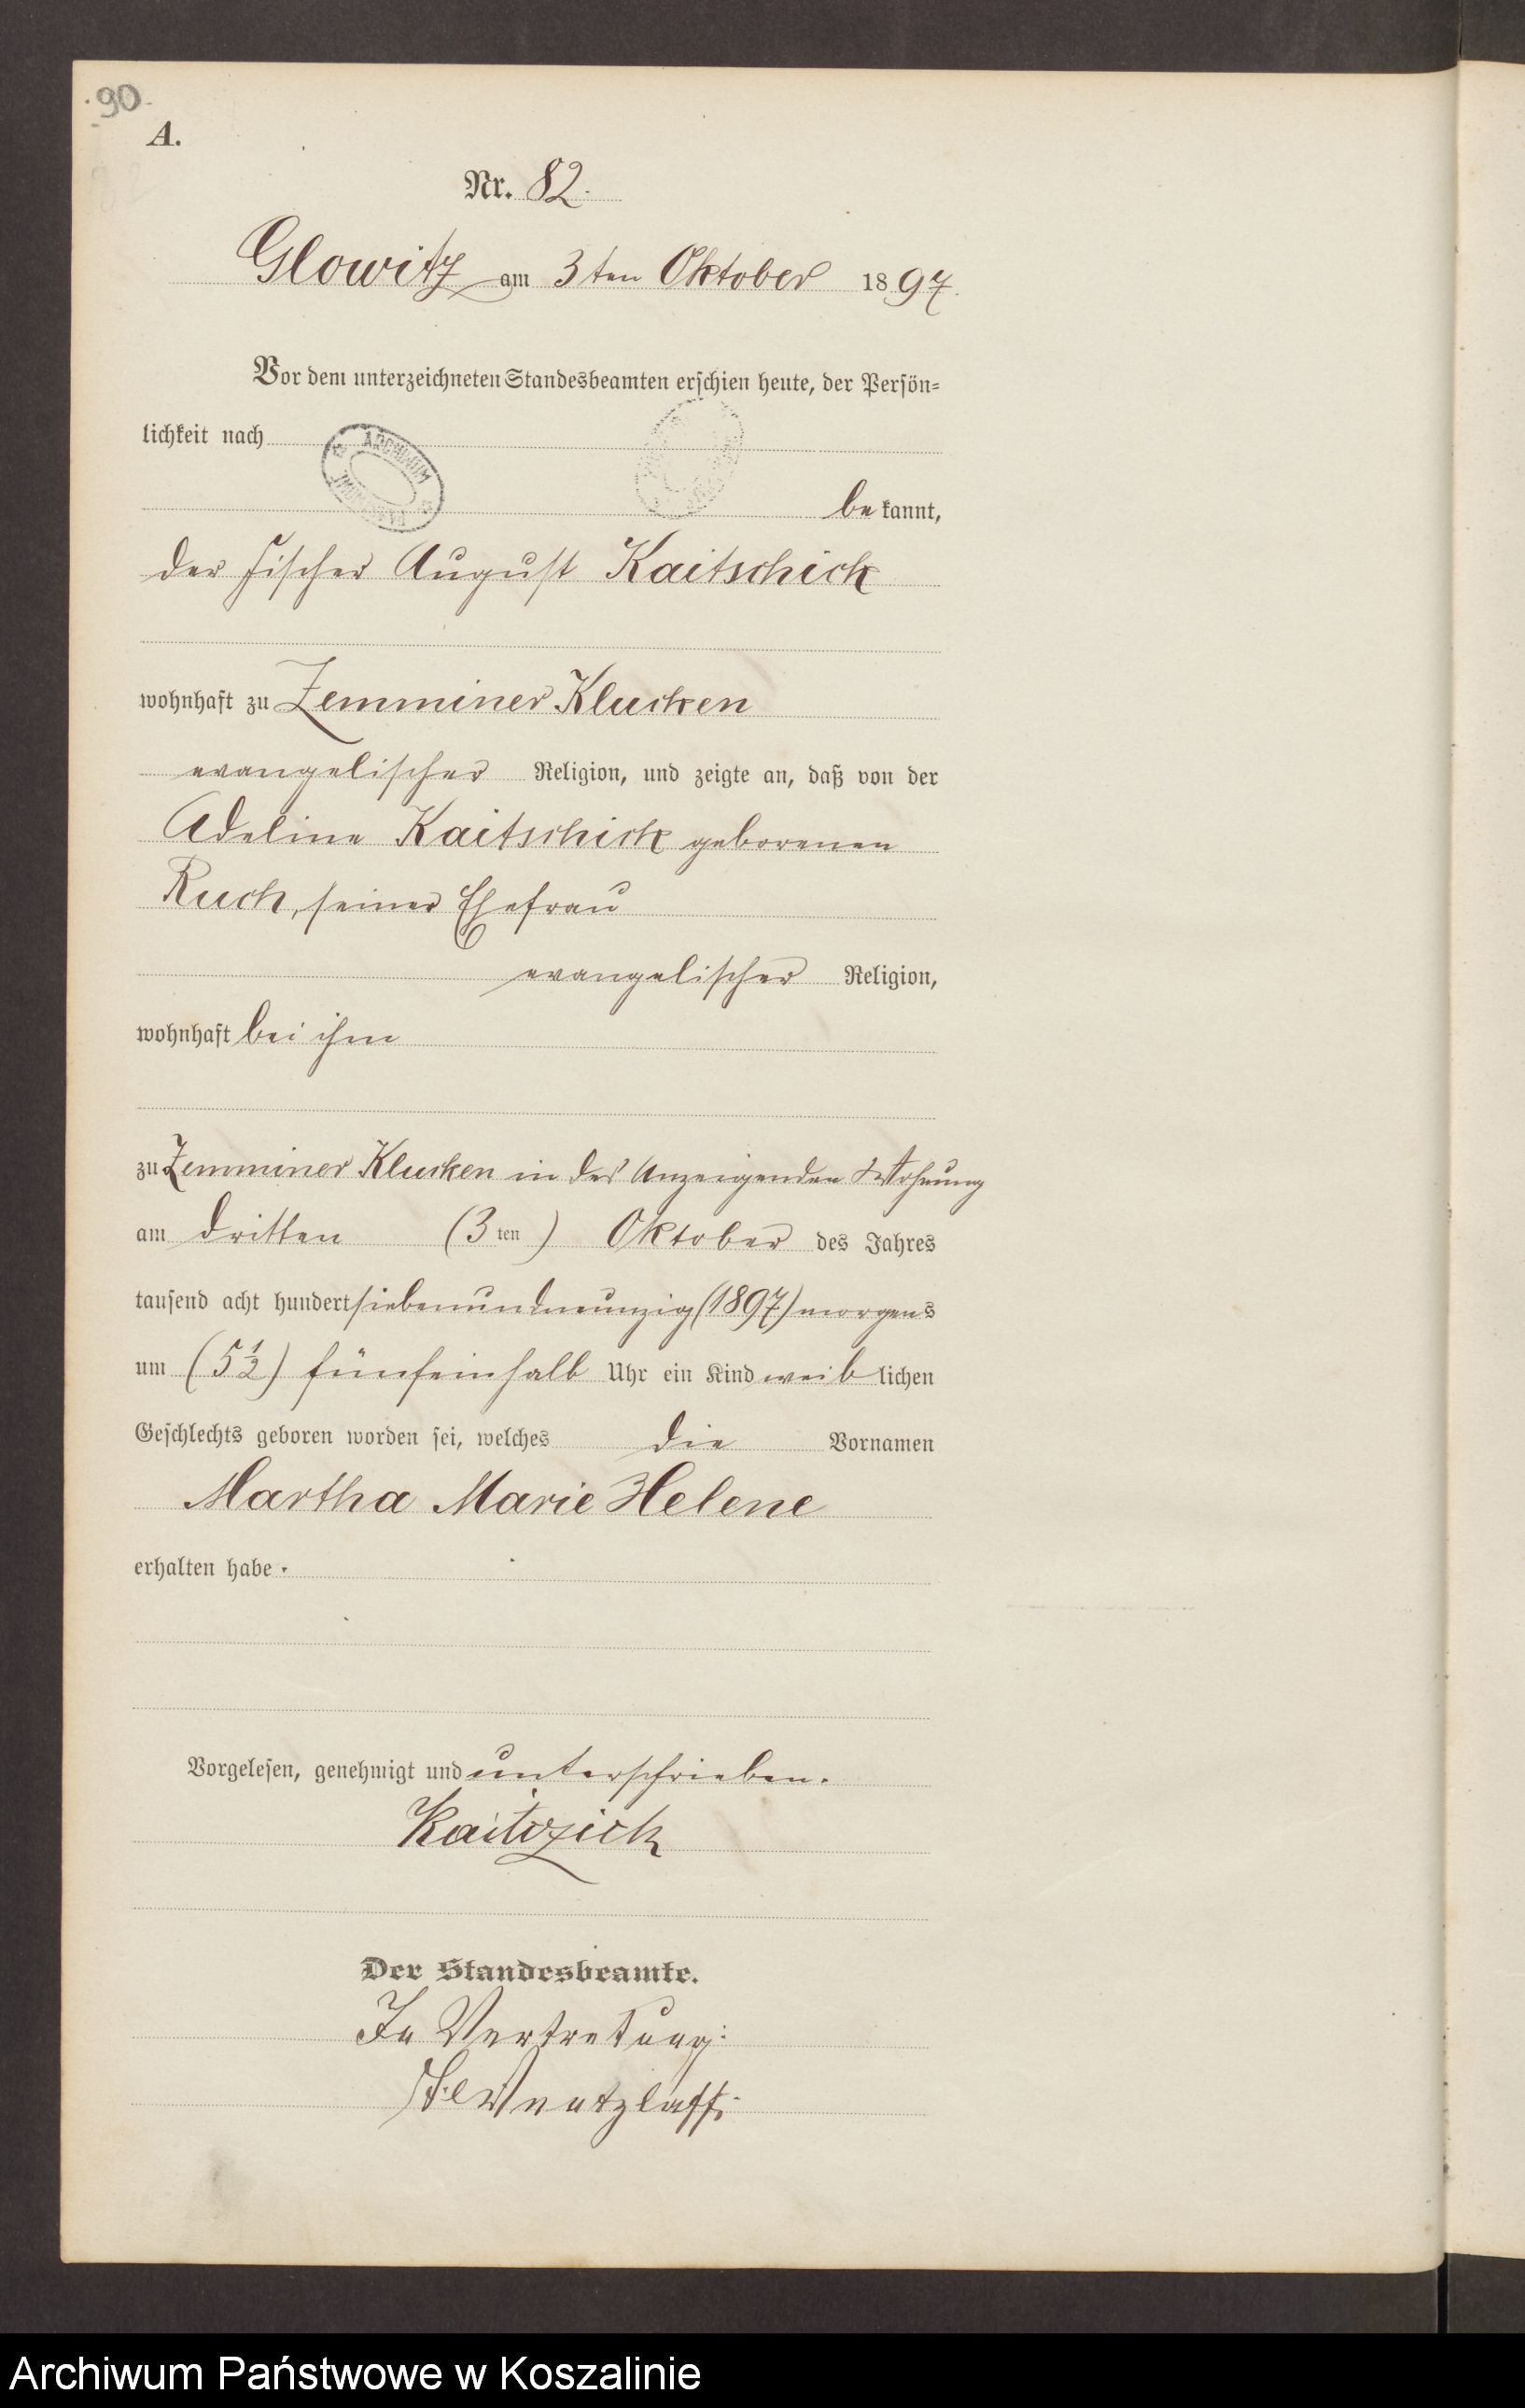 90
A.
Nr. 82.
Glowitz am 3ten Oktober 1897.
Vor dem unterzeichneten Standesbeamten erschien heute, der Persön-
lichkeit nach
ARCHIWUM
be kannt,
der Fischer August Kaitschick
wohnhaft zu Zemminer Klucken
evangelischer Religion, und zeigte an, daß von der
Adeline Kaitschick geborenen
Ruch, seiner Ehefrau
evangelischer Religion,
wohnhaft bei ihm
zu Zemminer Klucken in des Anzeigenden Wohnung
am dritten (3 ten) Oktober des Jahres
tausend acht hundert siebenundneunzig (1897) morgens
um (5½) fünfeinhalb Uhr ein Kind weib lichen
Geschlechts geboren worden sei, welches die Vornamen
Martha Marie Helene
erhalten habe.
Vorgelesen, genehmigt und unterschrieben.
Kaitczick
Der Standesbeamte.
In Vertretung:
Wentzlaff.
Archiwum Państwowe w Koszalinie